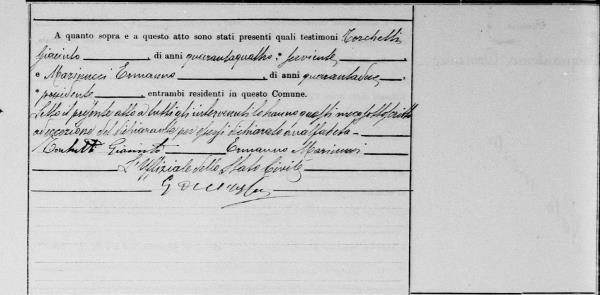 A quanto sopra e a questo atto sono stati presenti quali testimoni Torchetti
Giacinto, di anni quarantaquattro, serviente,
e Marinucci Ermanno, di anni quarantadue,
possidente, entrambi residenti in questo Comune.
Letto il presente atto a tutti gli intervenuti lo hanno questi meco sottoscritto
ad eccezione del dichiarante per essersi dichiarato analfabeta
Giacinto Ermanno Marinucci
L'Uffiziale dello Stato Civile